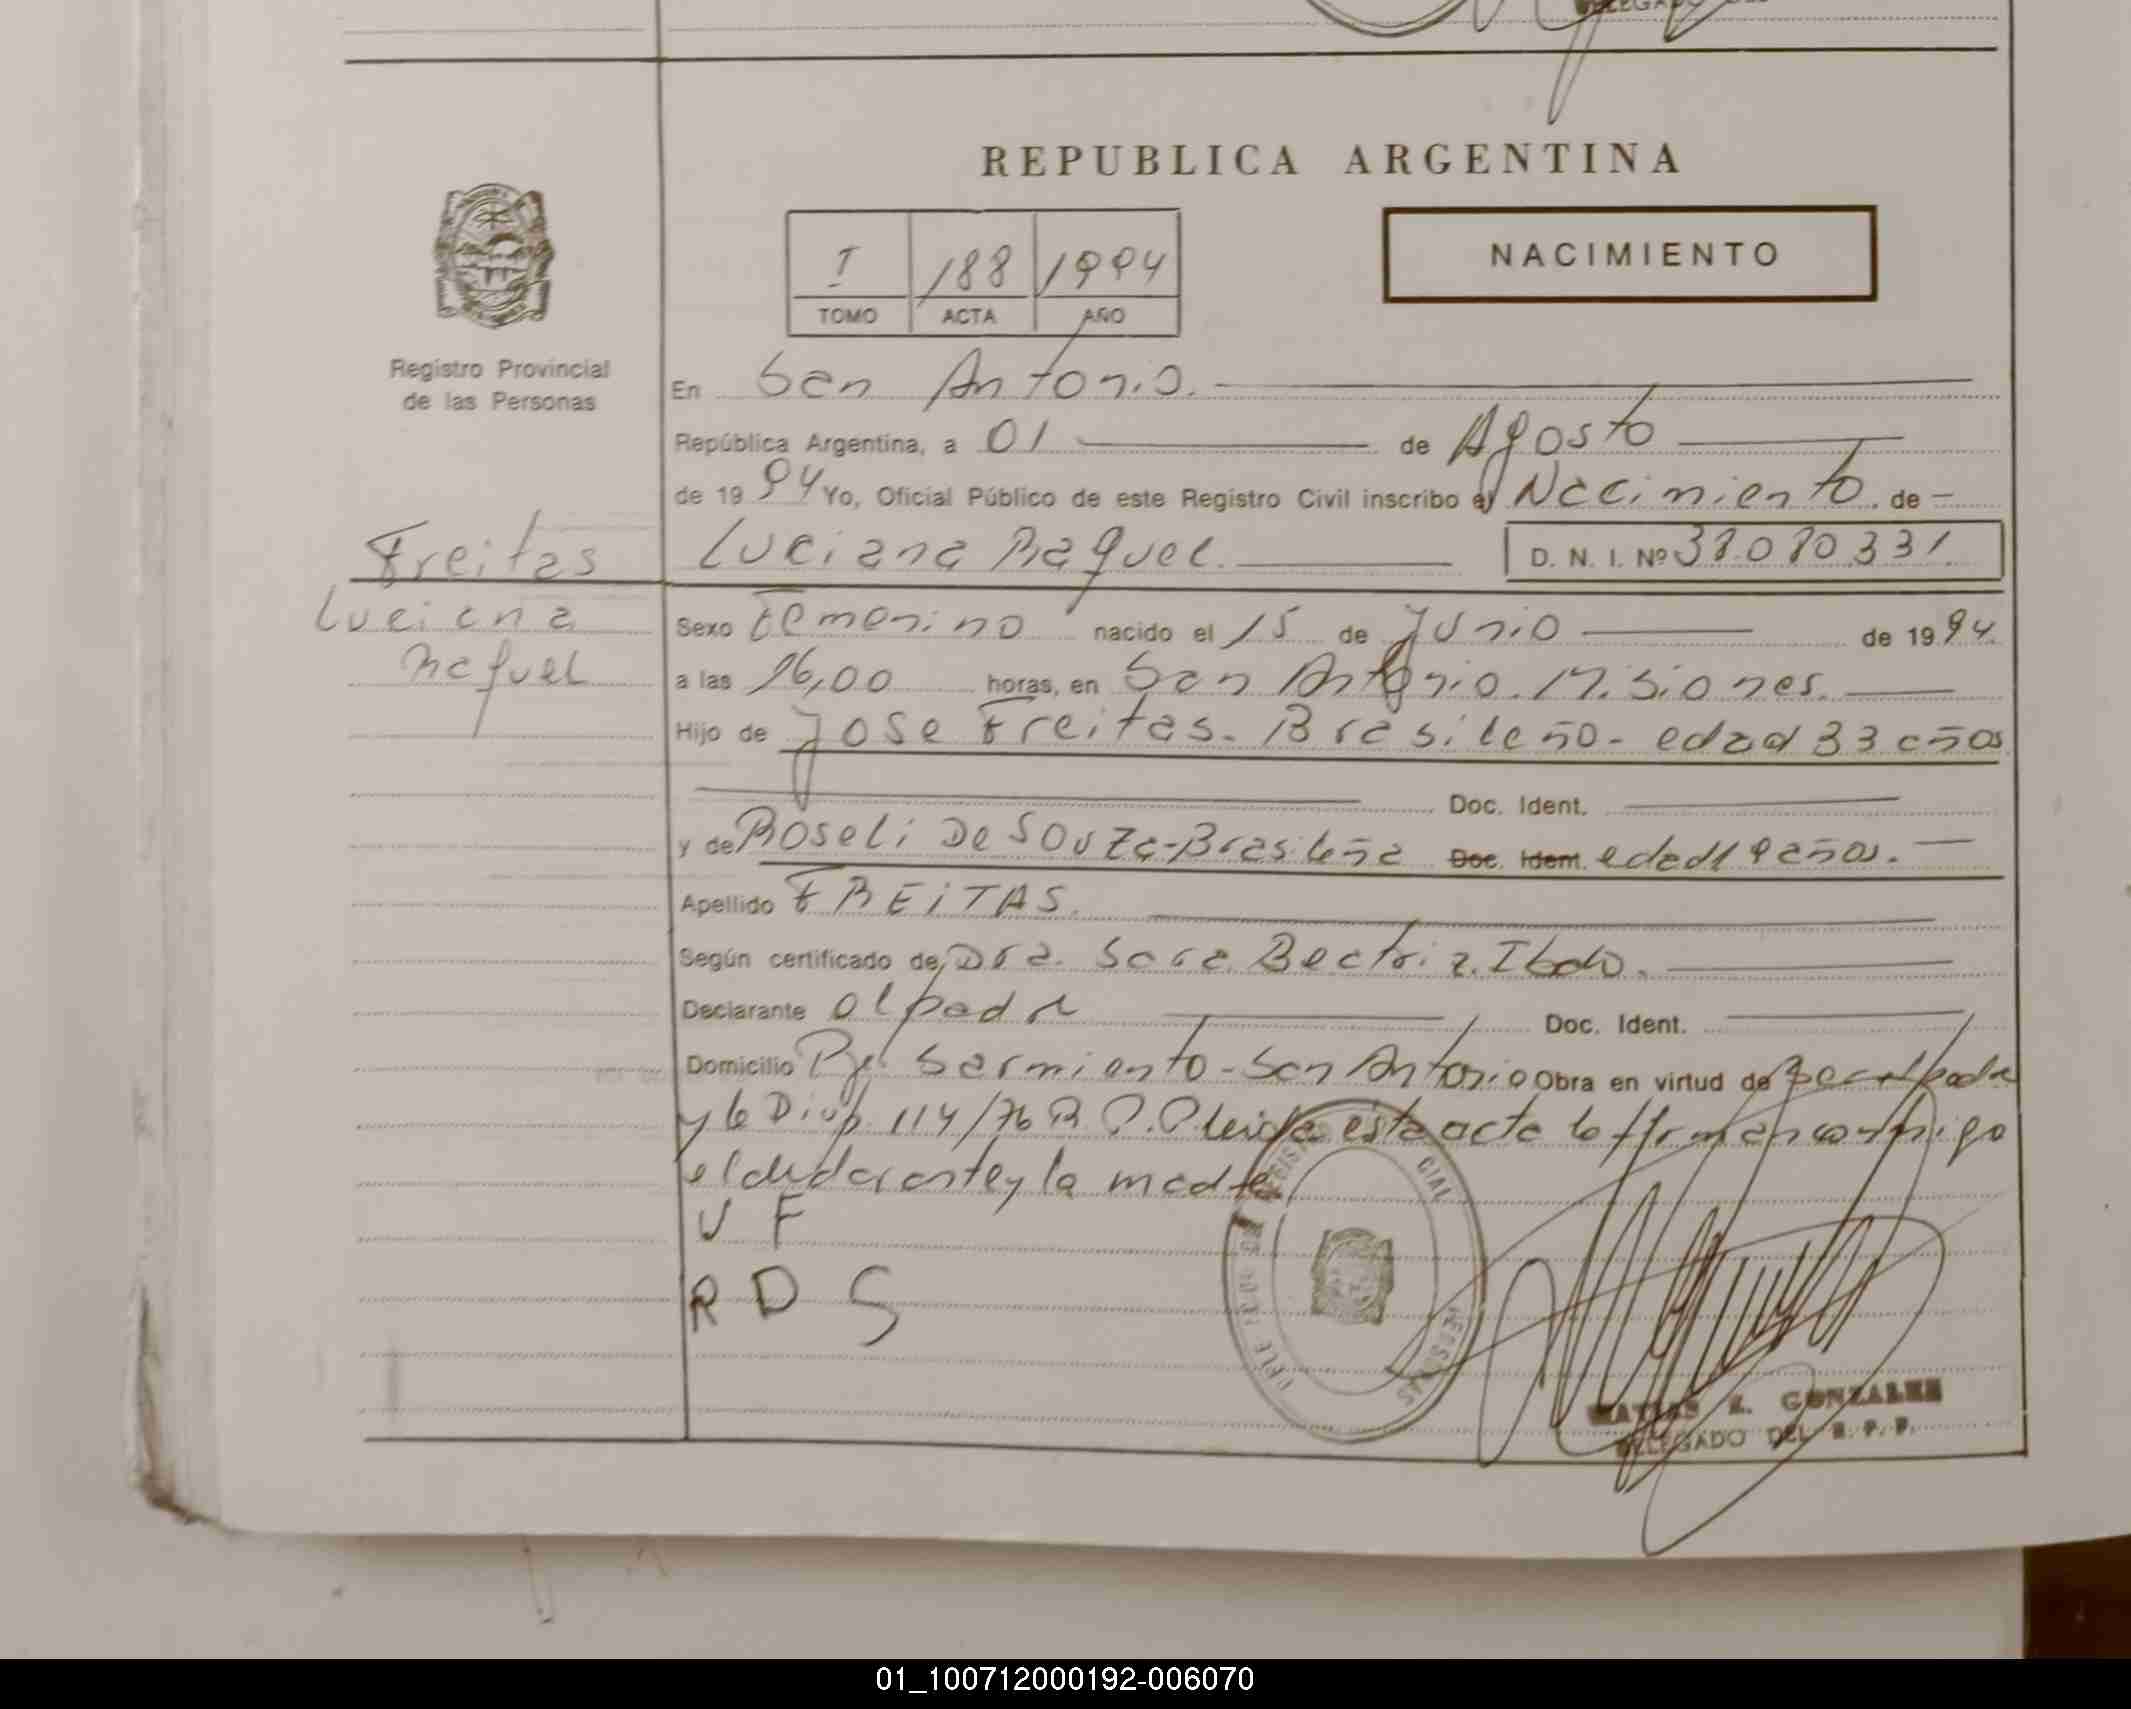 DELEGADO DEL
REPUBLICA ARGENTINA
I 188 1994
TOMO ACTA AÑO
NACIMIENTO
Registro Provincial
de las Personas
En San Antonio.
República Argentina, a 01 de Agosto
de 1994 Yo, Oficial Público de este Registro Civil inscribo el Nacimiento de
Freitas
Luciana
Raquel
Luciana Raquel. D. N. I. Nº
Sexo Femenino nacido el 15 de Junio de 1994.
a las 16,00 horas, en San Antonio. Misiones.
Hijo de Jose Freitas. Brasileño - edad 33 años
Doc. Ident.
y de Roseli De Souza - Brasileña Doc. Ident. edad 19 años.
Apellido FREITAS.
Según certificado de Dra. Sara Beatriz
Declarante el padre Doc. Ident.
Domicilio Sarmiento - San Antonio Obra en virtud de
y la Disp. 114/76 R.P.P. leida esta acta la firman conmigo
el declarante y la madre.
J F
R D S
MATIAS E. GONZALEZ
DELEGADO DEL R. P. P.
01_100712000192-006070